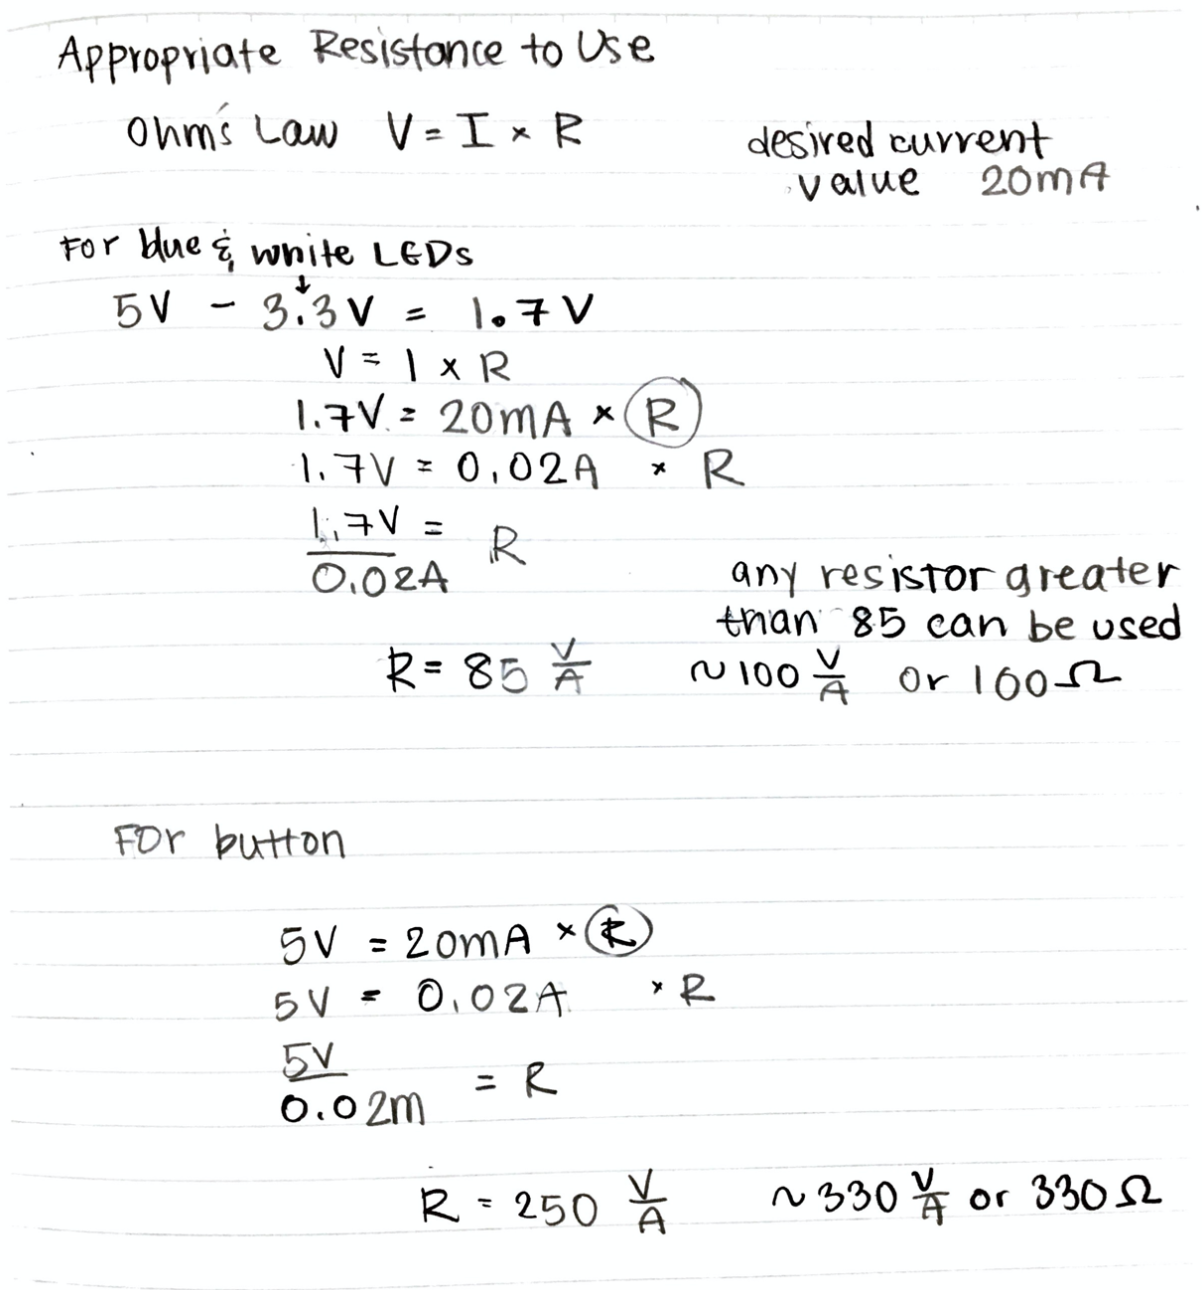 Appropriate Resistance to Use
Ohm's Law V = I × R
desired current
value 20mA
For blue & white LEDs
5V - 3.3V = 1.7V
V = I × R
1.7V = 20mA × R
1.7V = 0.02A × R
1.7V = R
0.02A
any resistor greater
than 85 can be used
R = 85 V/A ~100 V/A or 100Ω
For button
5V = 20mA × R
5V = 0.02A × R
5V
0.02m = R
R = 250 V/A ~330 V/A or 330Ω